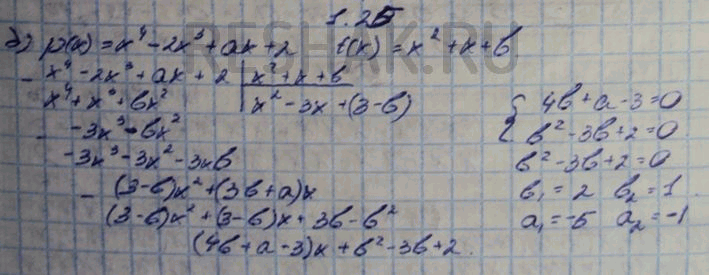 1.25
б) p(x) = x⁴ - 2x³ + ax + 2 t(x) = x² + x + b
- x⁴ - 2x³ + ax + 2 | x² + x + b
x⁴ + x³ + bx² | x² - 3x + (3 - b)
- -3x³ - bx²
-3x³ - 3x² - 3xb
- (3-b)x² + (3b+a)x
(3-b)x² + (3-b)x + 3b - b²
(4b + a - 3)x + b² - 3b + 2.
{ 4b + a - 3 = 0
b² - 3b + 2 = 0
b² - 3b + 2 = 0
b₁ = 2 b₂ = 1.
a₁ = -5 a₂ = -1
RESHAK.RU